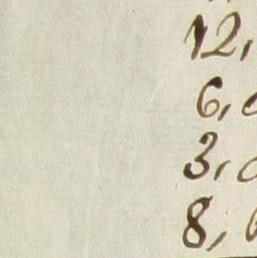 12,
6,
3,
8,